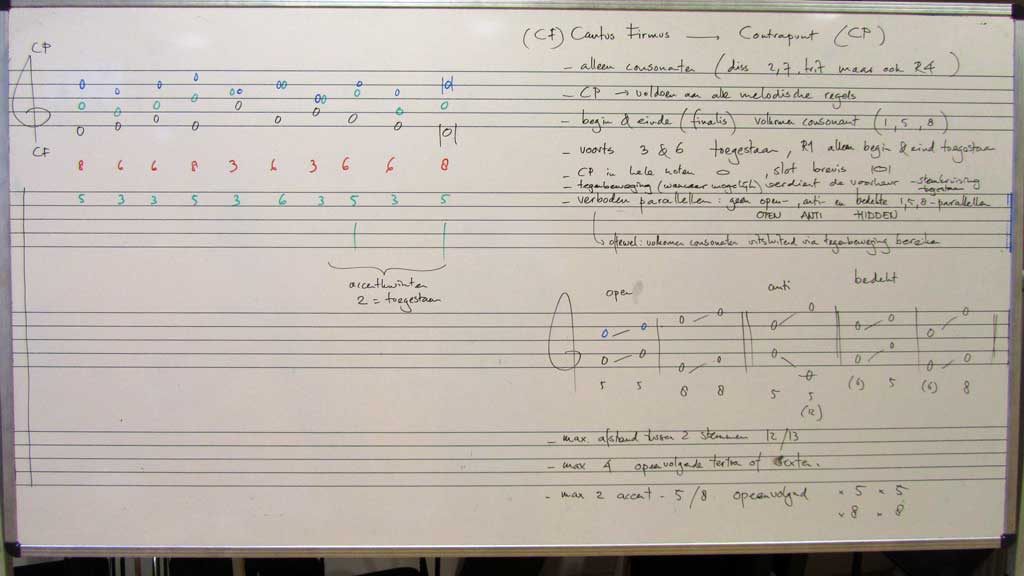 CP
CF
8 6 6 8 3 6 3 6 6 8
5 3 3 5 3 6 3 5 3 5
accentkwinten
2 = toegestaan
(CF) Cantus Firmus → Contrapunt (CP)
- alleen consonanten (diss 2,7, trit maar ook R4)
- CP → voldoen aan alle melodische regels
- begin & einde (finalis) volkomen consonant (1, 5, 8)
- voorts 3 & 6 toegestaan, R1 alleen begin & eind toegestaan
- CP in hele noten, slot brevis |O|
- tegenbeweging (wanneer mogelijk) verdient de voorkeur - stemkruising toegestaan
- verboden parallellen: geen open-, anti- en bedekte 1,5,8-parallellen
OPEN ANTI HIDDEN
→ oftewel: volkomen consonanten uitsluitend via tegenbeweging bereiken
open anti bedekt
5 5 8 8 5 5 (6) 5 (6) 8
(12)
- max. afstand tussen 2 stemmen 12/13
- max 4 opeenvolgende tertsen of sexten.
- max 2 accent - 5/8 opeenvolgend × 5 × 5
× 8 × 8